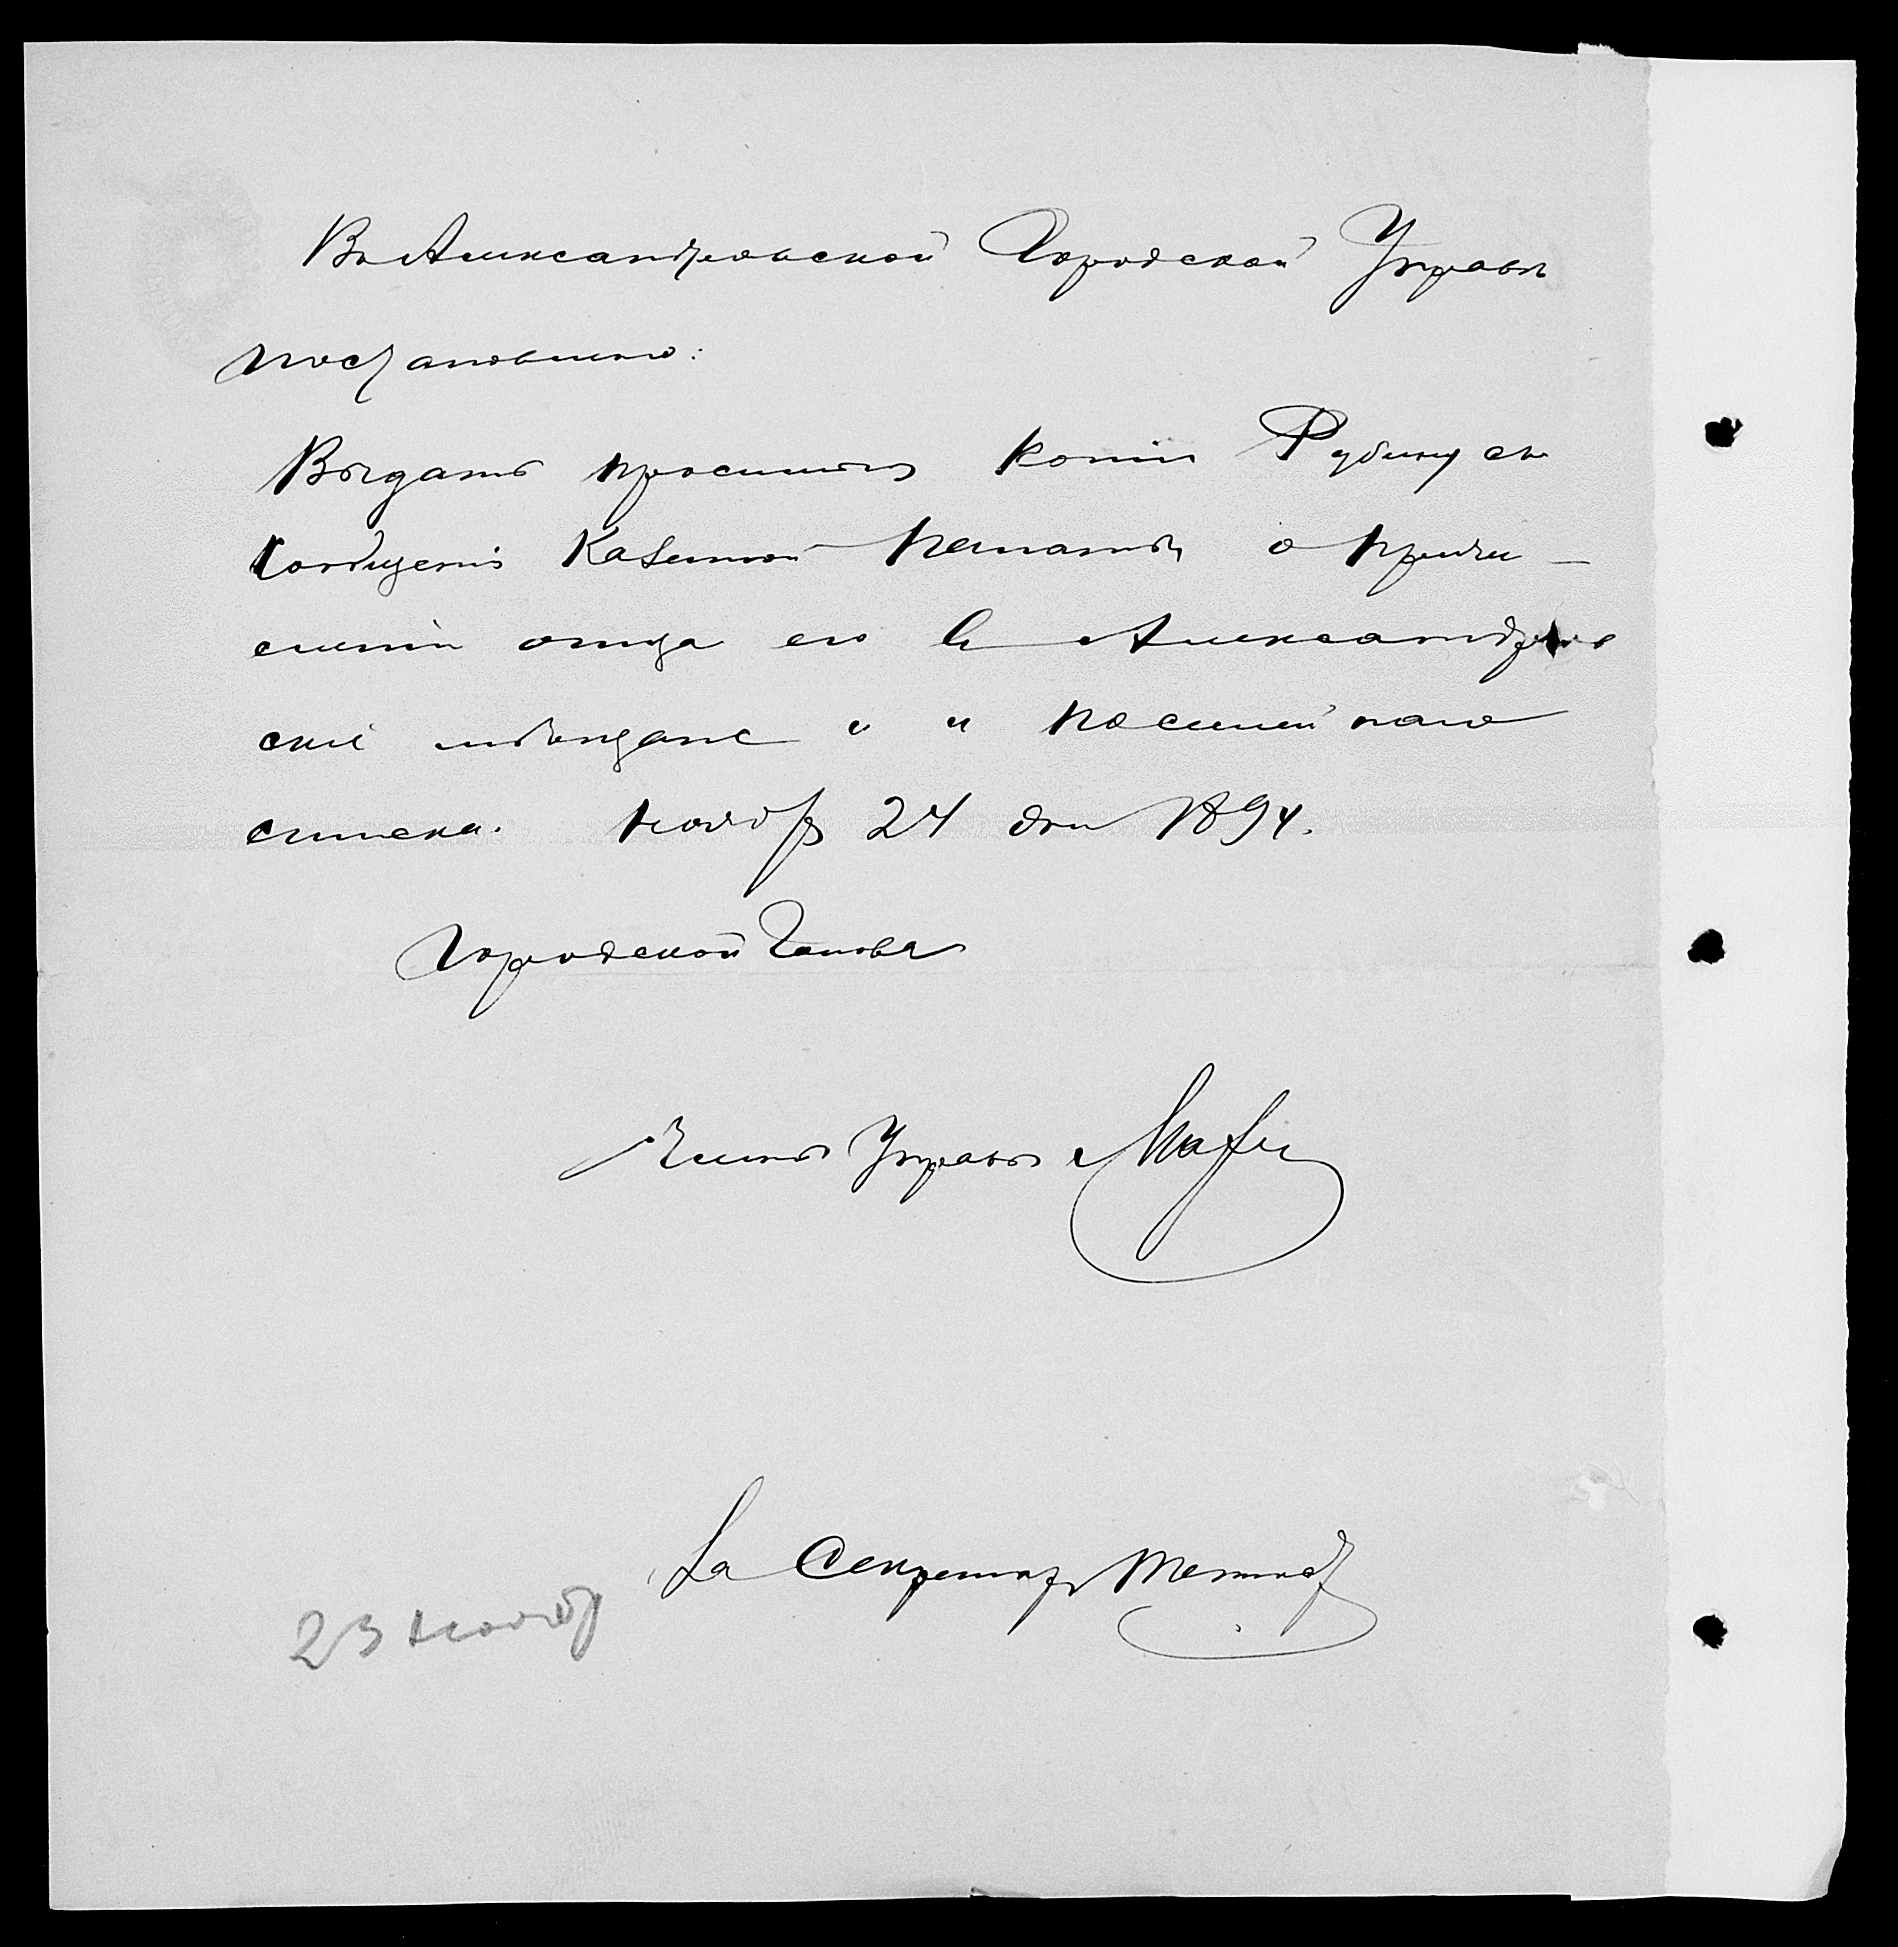 Въ Александровской Городской Управѣ
постановлено:
Выдать просимыя копіи Рубину съ
сообщенія Казенной Палаты о причи-
сленіи отца его въ Александров
скіе мѣщане и посемейнаго
списка. Ноябр 24 дня 1894.
Городской Голова
Членъ Управы
За Секретаря
23 Нояб